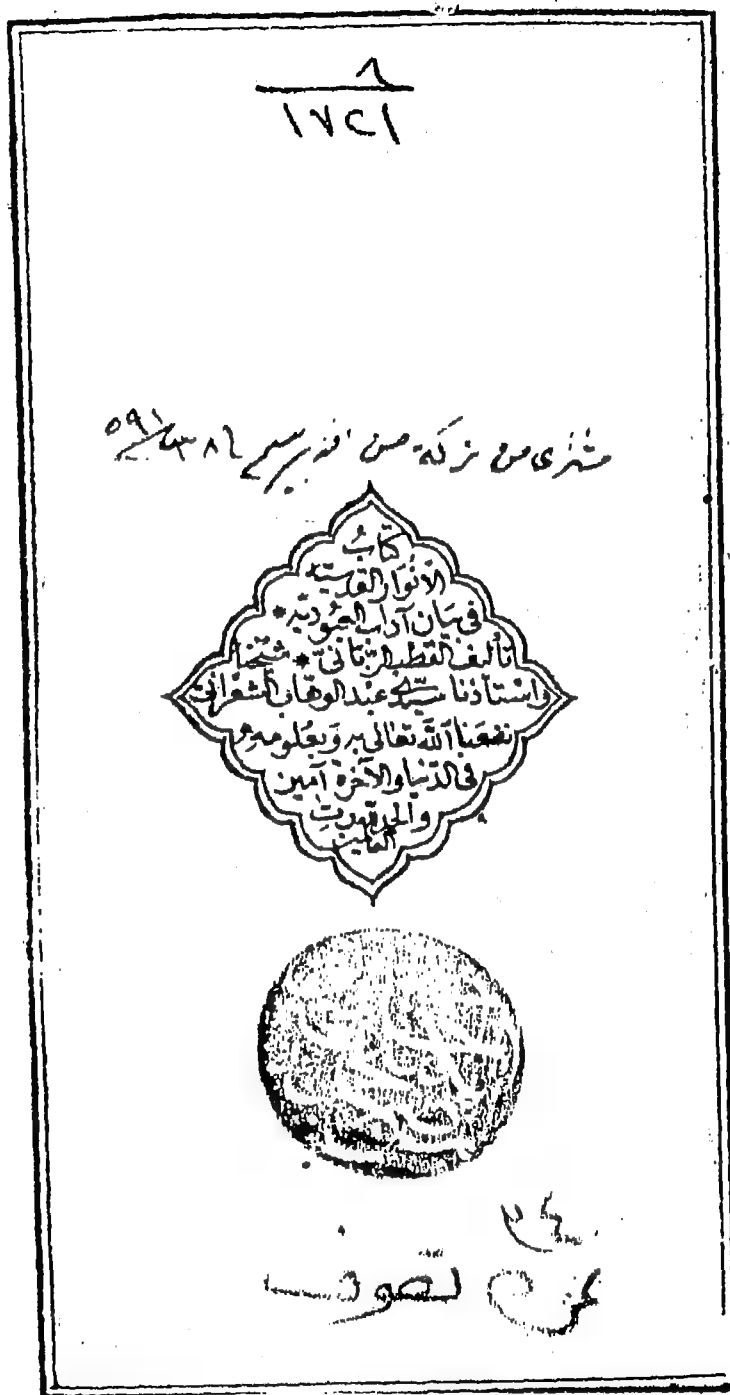 ٨
١٧٢١
مشترى من تركة حسن
كتاب
الأنوار القدسية
فى بيان آداب العبودية *
تأليف القطب الربانى * شيخنا
واستاذنا سيدى عبد الوهاب الشعرانى
نفعنا الله تعالى به وبعلومه
فى الدنيا والآخرة آمين
والحمد لله رب
العالمين
تصوف